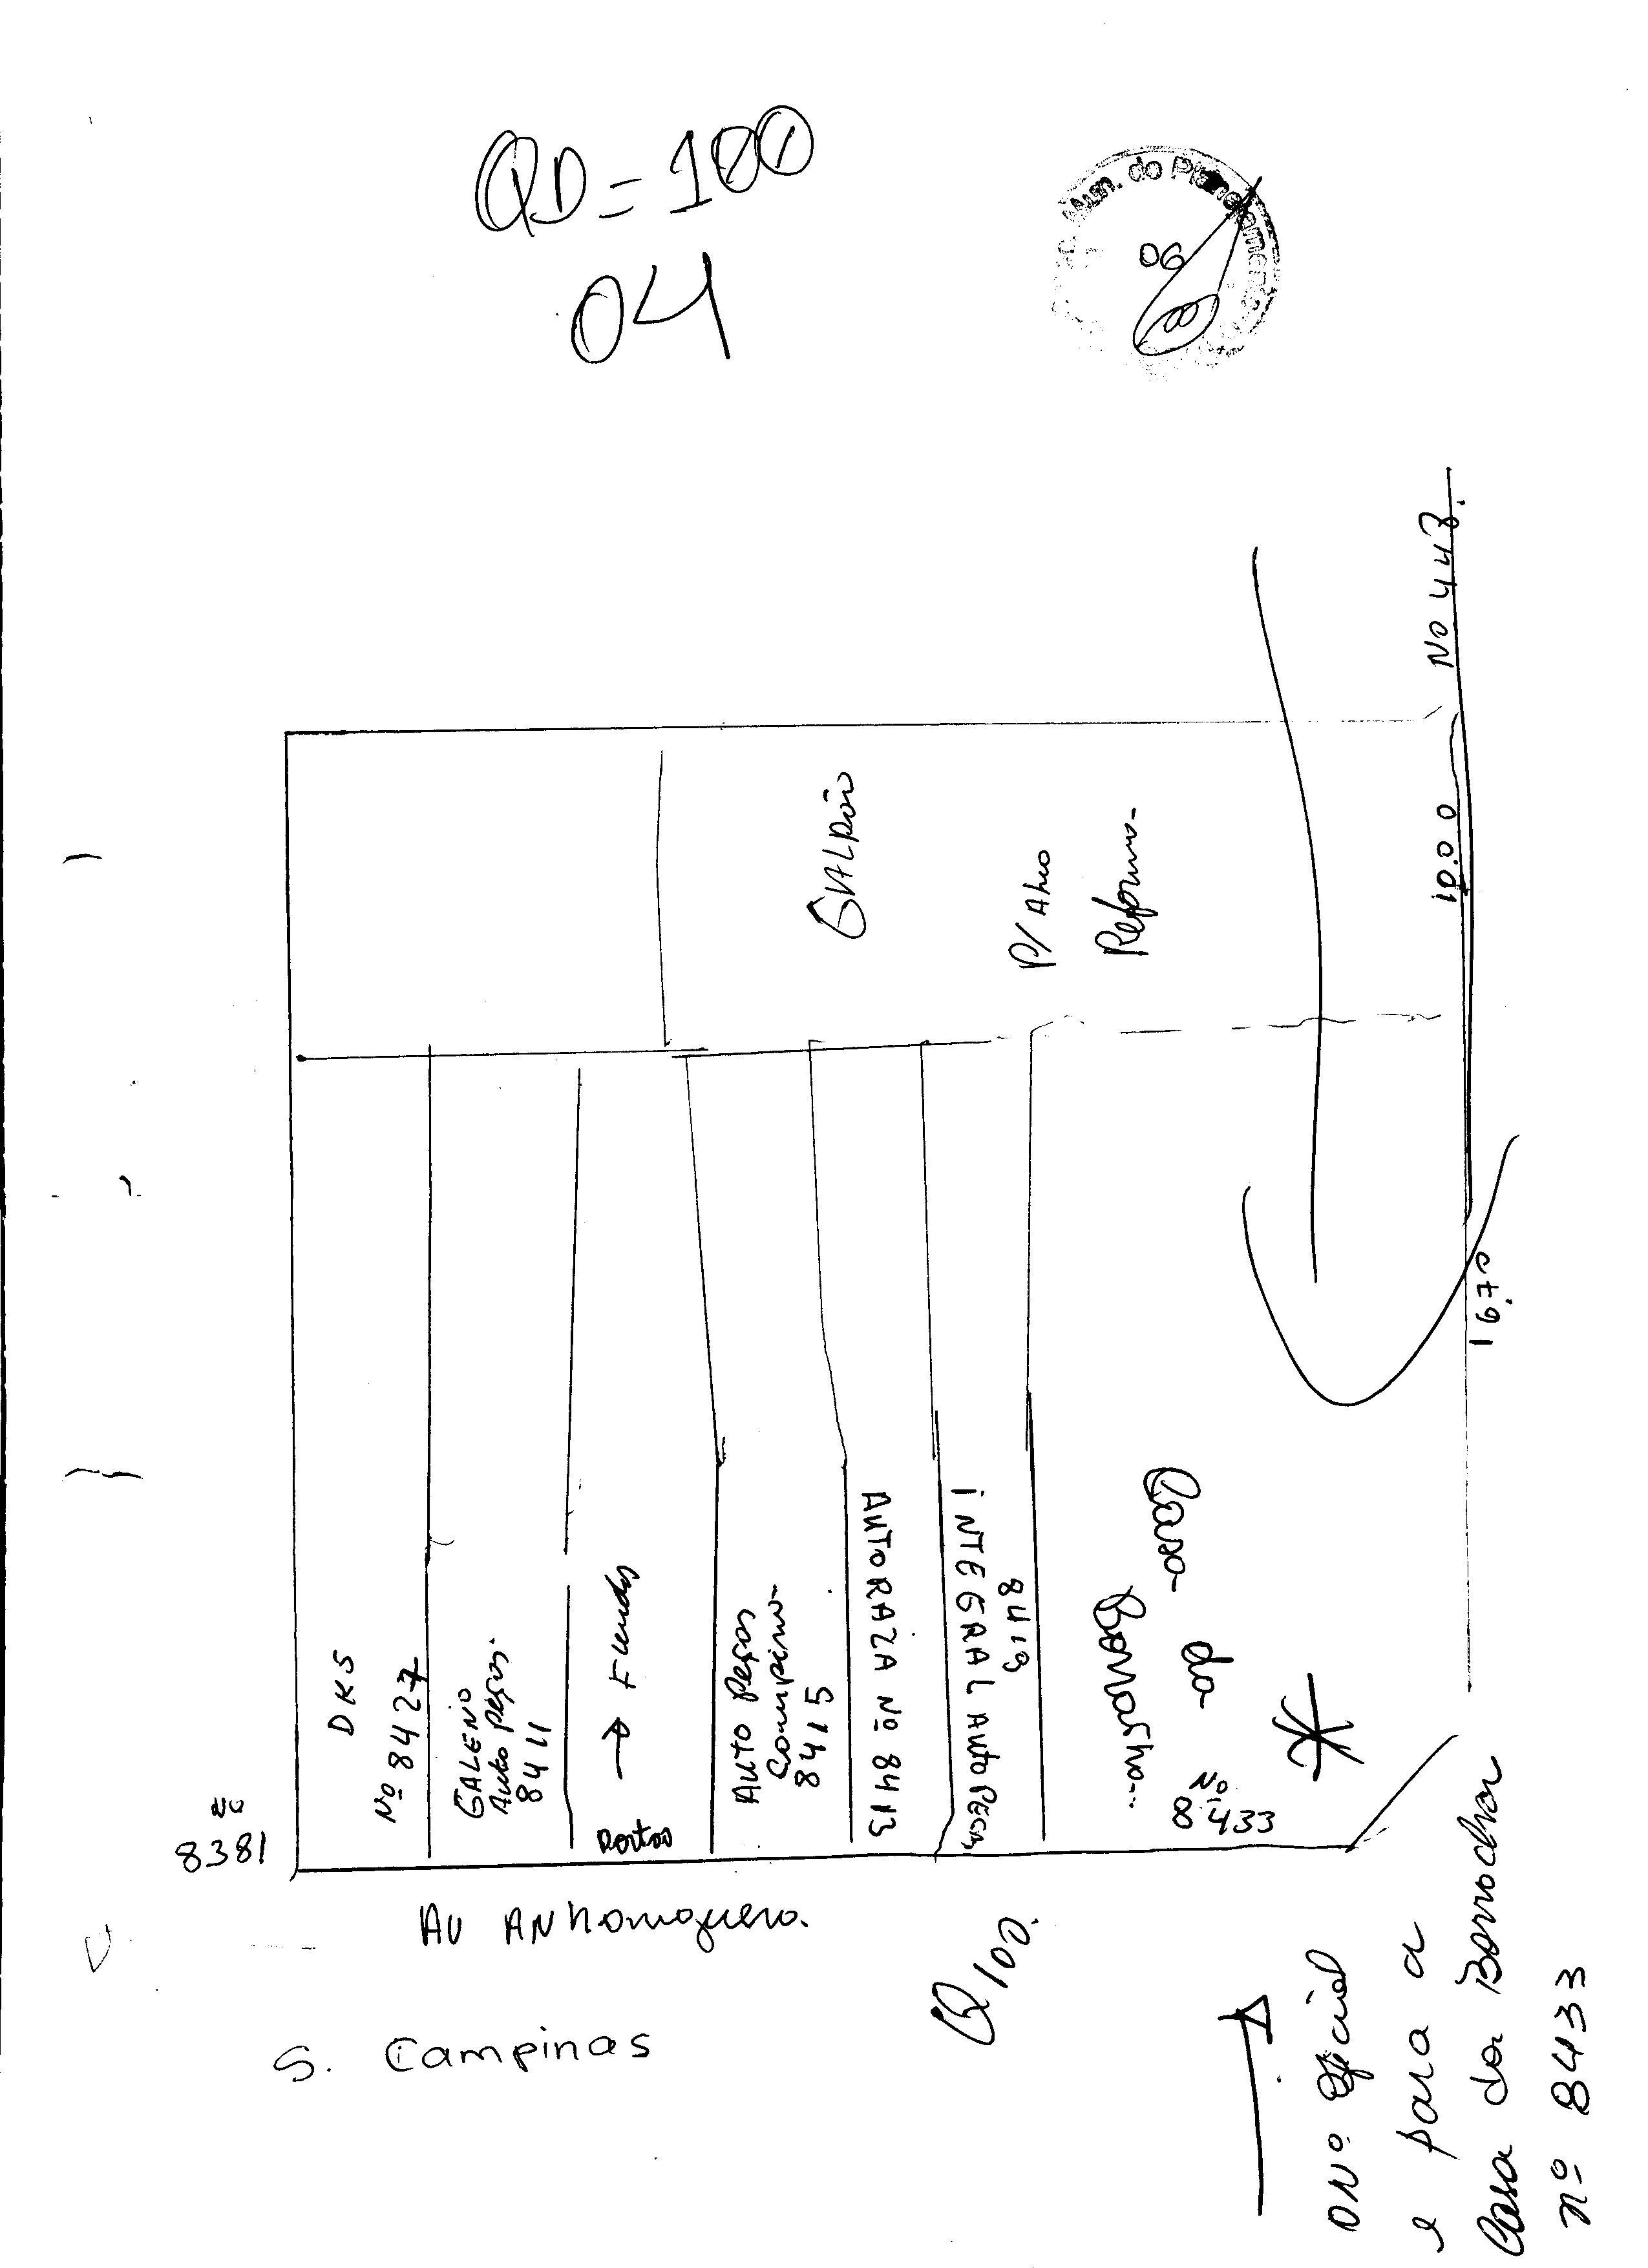 QD=100
04
Mun. do Planejamento
06
No 443.
10.00
GALPÃO
P/
Reforma-
16.70
DKS
Nº 8427
GALENO
Auto Peças.
8411
→ Fundos
Portão
Auto Peças
Campinas-
8415
AUTORAZA Nº 8413
INTEGRAL Auto Peças
8419
Casa da
Borracha...
Nº
8433
No
8381
AV ANhanguera.
Q 100.
S. Campinas
O Nº Oficial
e para a
Casa da Borracha
nº 8433